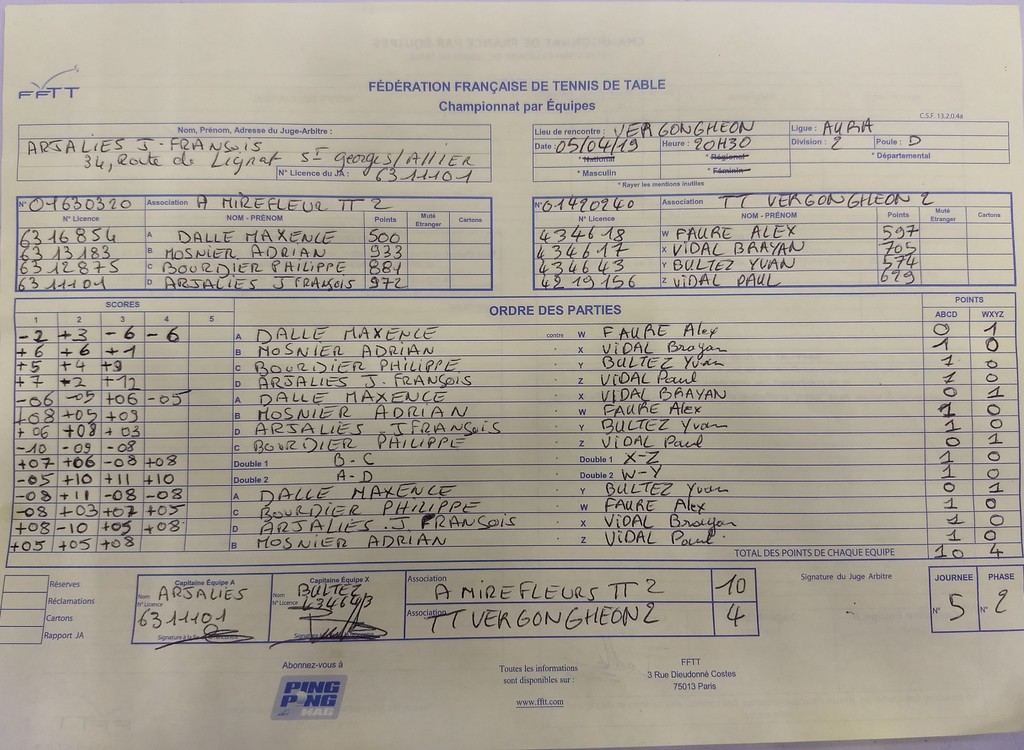 FFTT
FÉDÉRATION FRANÇAISE DE TENNIS DE TABLE
Championnat par Équipes
C.S.F. 13.2.0.4a
Nom, Prénom, Adresse du Juge-Arbitre :
ARJALIES J-FRANSOIS
34, Route de Lignat ST Georges/ALLIER
N° Licence du JA : 6311101
Lieu de rencontre : VERGONGHEON Ligue : AURA
Date : 05/04/19 Heure : 20H30 Division : 2 Poule : D
* National * Régional * Départemental
* Masculin * Féminin
* Rayer les mentions inutiles
N° 01630320 Association A MIREFLEUR TT 2
N° Licence NOM - PRÉNOM Points Muté Etranger Cartons
6316854 A DALLE MAXENCE 500
6313183 B MOSNIER ADRIAN 933
6312875 C BOURDIER PHILIPPE 881
6311101 D ARJALIES J FRANSOIS 972
N° 01420240 Association TT VERGONGHEON 2
N° Licence NOM - PRÉNOM Points Muté Etranger Cartons
434618 W FAURE ALEX 597
434617 X VIDAL BRAYAN 705
434643 Y BULTEZ YVAN 574
4219156 Z VIDAL PAUL 629
SCORES ORDRE DES PARTIES POINTS
1 2 3 4 5 ABCD WXYZ
-2 +3 -6 -6 A DALLE MAXENCE contre W FAURE Alex 0 1
+6 +6 +1 B MOSNIER ADRIAN X VIDAL Brayan 1 0
+5 +4 +9 C BOURDIER PHILIPPE Y BULTEZ Yvan 1 0
+7 +2 +12 D ARJALIES J. FRANSOIS Z VIDAL Paul 1 0
-06 -05 +06 -05 A DALLE MAXENCE X VIDAL BRAYAN 0 1
+08 +05 +09 B MOSNIER ADRIAN W FAURE Alex 1 0
+06 +08 +03 D ARJALIES . J FRANSOIS Y BULTEZ Yvan 1 0
-10 -09 -08 C BOURDIER PHILIPPE Z VIDAL Paul 0 1
+07 +06 -08 +08 Double 1 B-C Double 1 X-Z 1 0
-05 +10 +11 +10 Double 2 A-D Double 2 W-Y 1 0
-08 +11 -08 -08 A DALLE MAXENCE Y BULTEZ Yvan 0 1
-08 +03 +07 +05 C BOURDIER PHILIPPE W FAURE Alex 1 0
+08 -10 +05 +08 D ARJALIES . J FRANSOIS X VIDAL Brayan 1 0
+05 +05 +08 B MOSNIER ADRIAN Z VIDAL Paul 1 0
TOTAL DES POINTS DE CHAQUE EQUIPE 10 4
Réserves
Réclamations
Cartons
Rapport JA
Capitaine Équipe A
Nom ARJALIES
N° Licence
6311101
Capitaine Équipe X
Nom BULTEZ
N° Licence 434643
Association A MIREFLEURS TT 2 10
Association TT VERGONGHEON 2 4
Signature du Juge Arbitre
JOURNEE PHASE
N° 5 N° 2
Abonnez-vous à
PING PONG MAG
Toutes les informations
sont disponibles sur :
www.fftt.com
FFTT
3 Rue Dieudonné Costes
75013 Paris